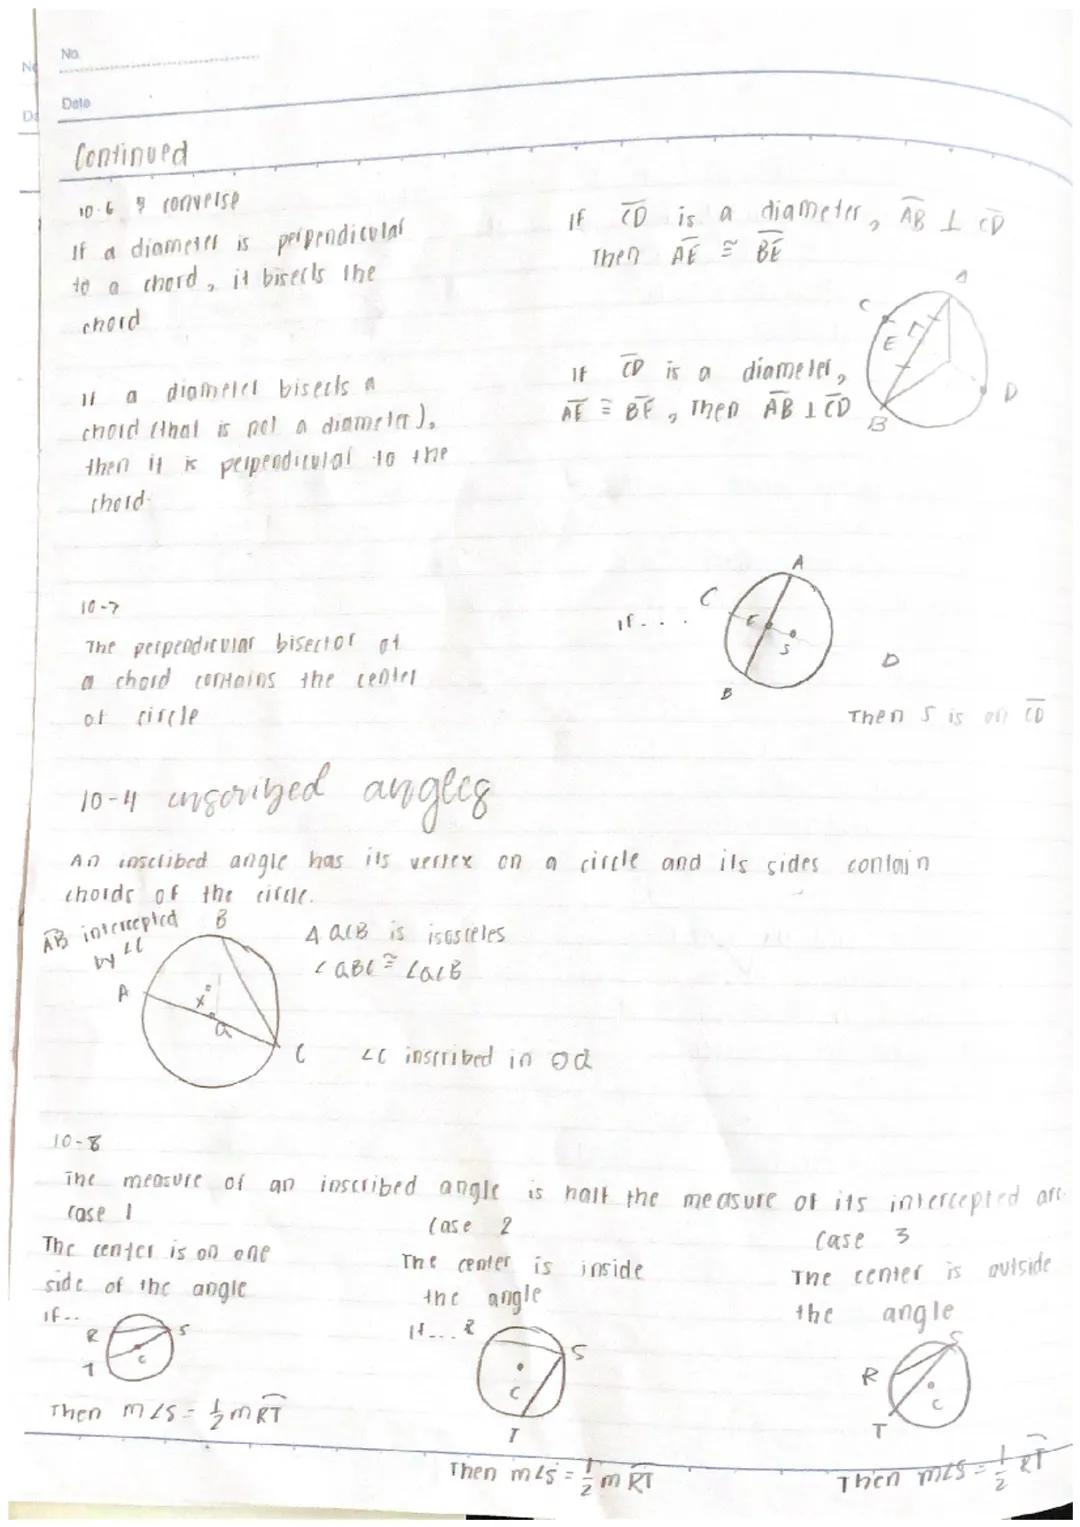 No
No.
Da
Date
Continued
10-6 & converse
If a diameter is perpendicular
to a chord, it bisects the
chord
If C̅D̅ is a diameter, A̅B̅ ⊥ C̅D̅
Then A̅E̅ ≅ B̅E̅
A
C
E
D
B
If a diameter bisects a
chord (that is not a diameter),
then it is perpendicular to the
chord.
If C̅D̅ is a diameter,
A̅E̅ ≅ B̅E̅, Then A̅B̅ ⊥ C̅D̅
10-7
The perpendicular bisector of
a chord contains the center
of circle
If...
A
C
E
S
B
D
Then S is on C̅D̅
10-4 inscribed angles
An inscribed angle has its vertex on a circle and its sides contain
chords of the circle.
A͡B intercepted
by ∠C
B
A
x°
Q
C
△ QCB is isosceles
∠QBC ≅ ∠QCB
∠C inscribed in ⊙Q
10-8
The measure of an inscribed angle is half the measure of its intercepted arc.
case 1
The center is on one
side of the angle
If..
R
S
T
C
Then m∠S = ½ m R͡T
Case 2
The center is inside
the angle
If... R
S
C
T
Then m∠S = ½ m R͡T
Case 3
The center is outside
the angle
S
R
C
T
Then m∠S = ½ R͡T